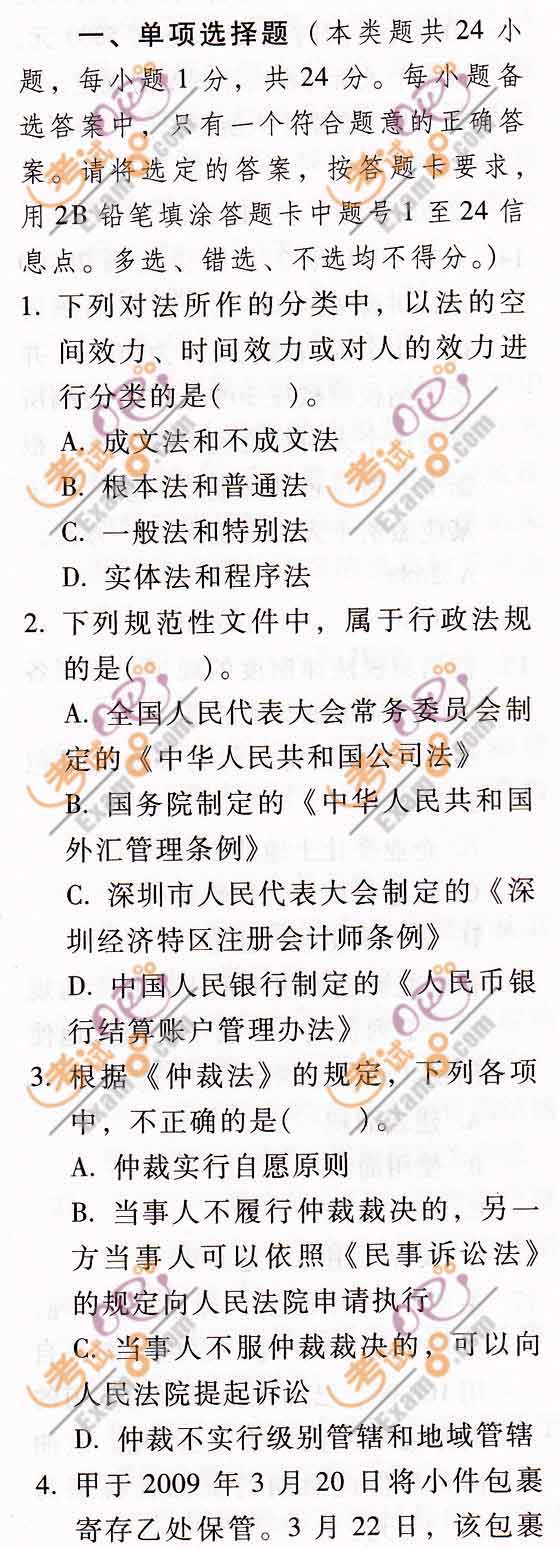 一、单项选择题（本类题共 24 小
题，每小题 1 分，共 24 分。每小题备
选答案中，只有一个符合题意的正确答
案。请将选定的答案，按答题卡要求，
用 2B 铅笔填涂答题卡中题号 1 至 24 信
息点。多选、错选、不选均不得分。）
1. 下列对法所作的分类中，以法的空
间效力、时间效力或对人的效力进
行分类的是(　　)。
A. 成文法和不成文法
B. 根本法和普通法
C. 一般法和特别法
D. 实体法和程序法
2. 下列规范性文件中，属于行政法规
的是(　　)。
A. 全国人民代表大会常务委员会制
定的《中华人民共和国公司法》
B. 国务院制定的《中华人民共和国
外汇管理条例》
C. 深圳市人民代表大会制定的《深
圳经济特区注册会计师条例》
D. 中国人民银行制定的《人民币银
行结算账户管理办法》
3. 根据《仲裁法》的规定，下列各项
中，不正确的是(　　)。
A. 仲裁实行自愿原则
B. 当事人不履行仲裁裁决的，另一
方当事人可以依照《民事诉讼法》
的规定向人民法院申请执行
C. 当事人不服仲裁裁决的，可以向
人民法院提起诉讼
D. 仲裁不实行级别管辖和地域管辖
4. 甲于 2009 年 3 月 20 日将小件包裹
寄存乙处保管。3 月 22 日，该包裹
考试吧
Exam8.com